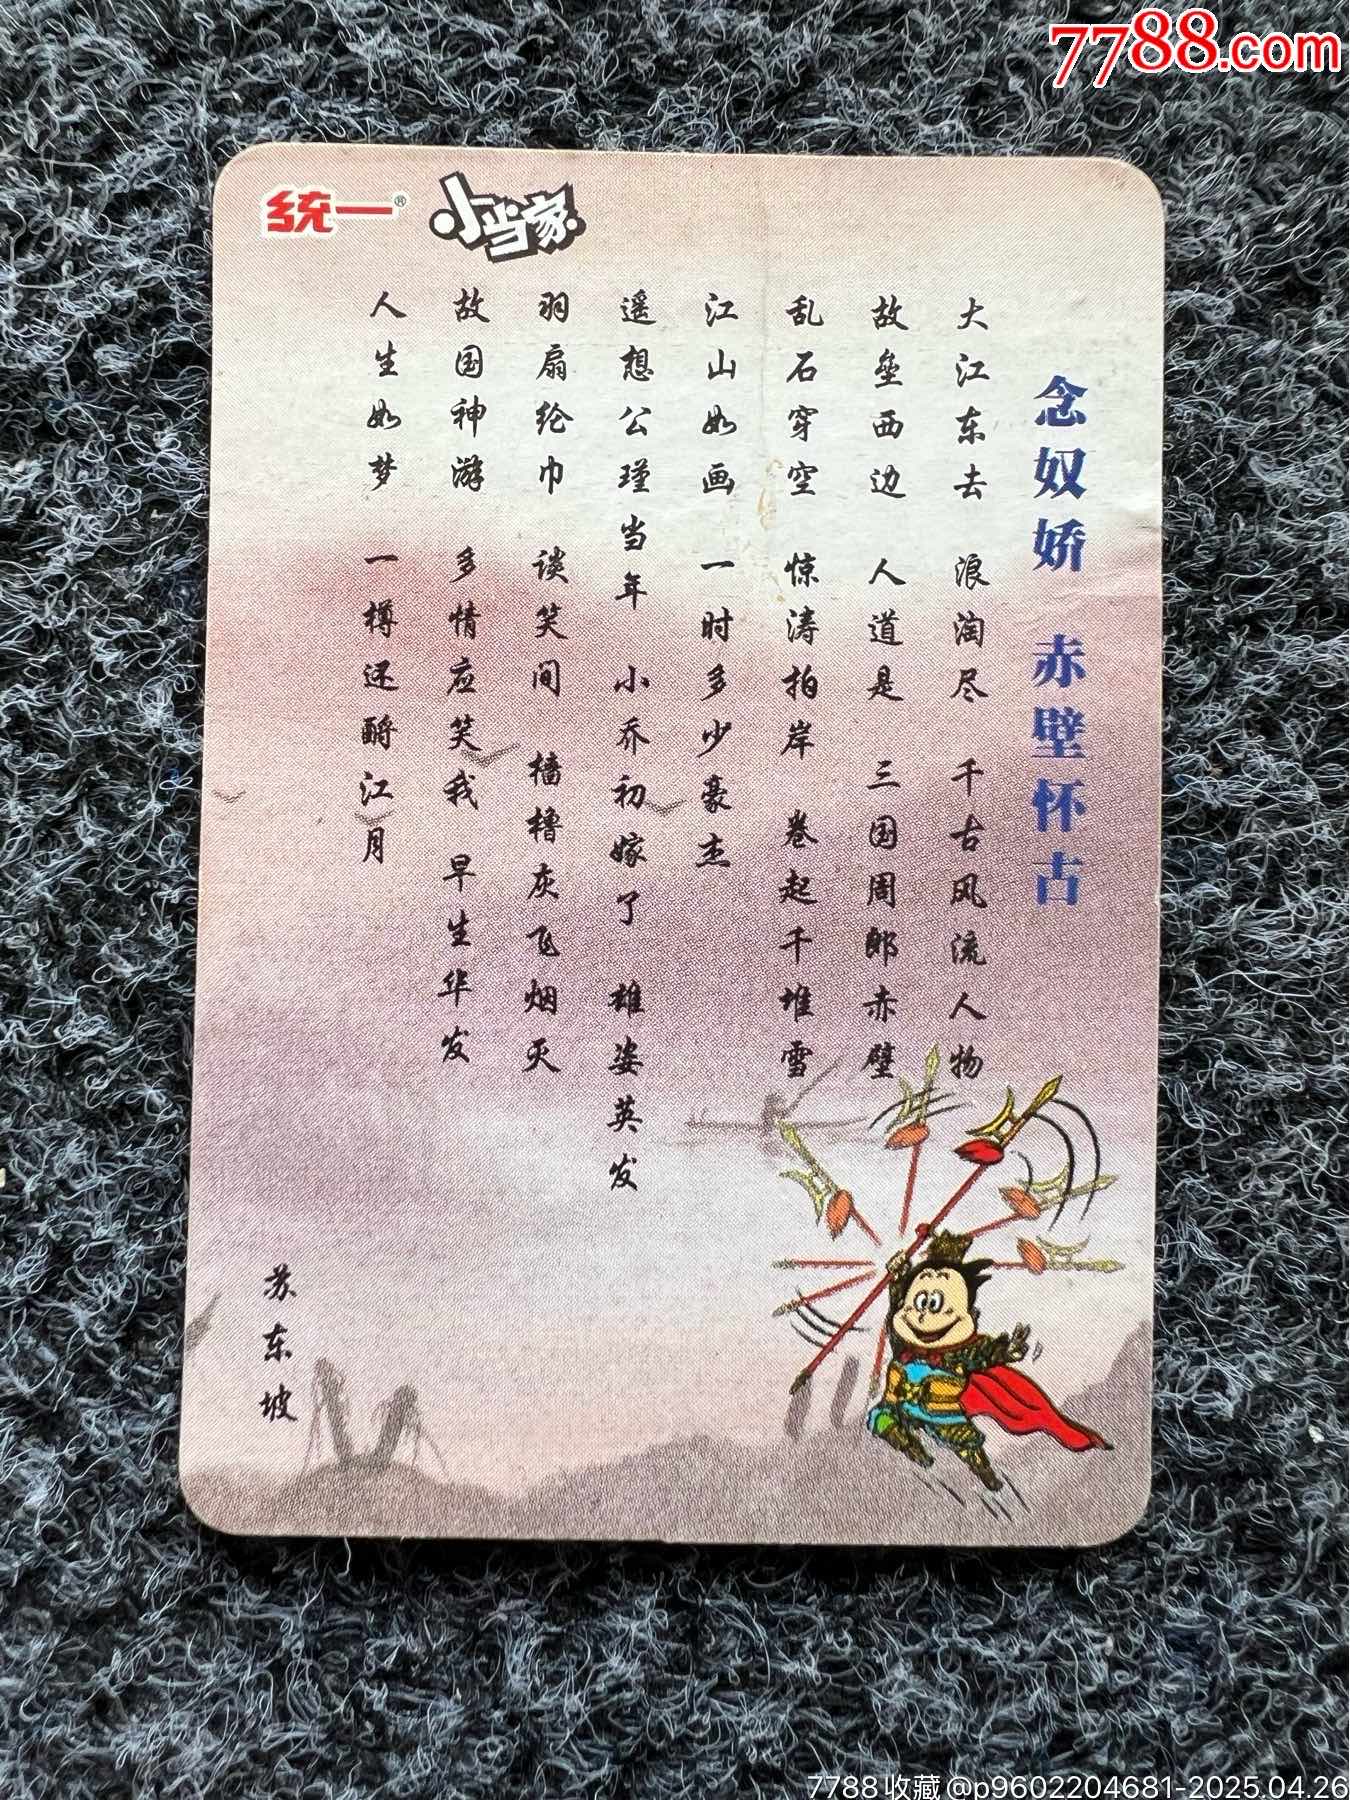 7788.com
统一®
小当家
念奴娇 赤壁怀古
大江东去 浪淘尽 千古风流人物
故垒西边 人道是 三国周郎赤壁
乱石穿空 惊涛拍岸 卷起千堆雪
江山如画 一时多少豪杰
遥想公瑾当年 小乔初嫁了 雄姿英发
羽扇纶巾 谈笑间 樯橹灰飞烟灭
故国神游 多情应笑我 早生华发
人生如梦 一樽还酹江月
苏东坡
7788收藏@p9602204681-2025.04.26